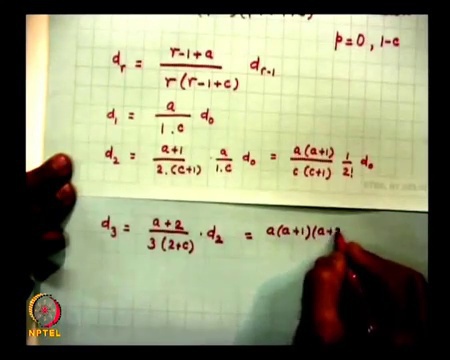 p=0, 1-c
d_r = (r-1+a) / (r(r-1+c)) d_{r-1}
d_1 = a / (1.c) d_0
d_2 = (a+1) / (2.(c+1)) . a / (1.c) d_0 = a(a+1) / (c(c+1)) 1 / 2! d_0
d_3 = (a+2) / (3(2+c)) . d_2 = a(a+1)(a+
NPTEL